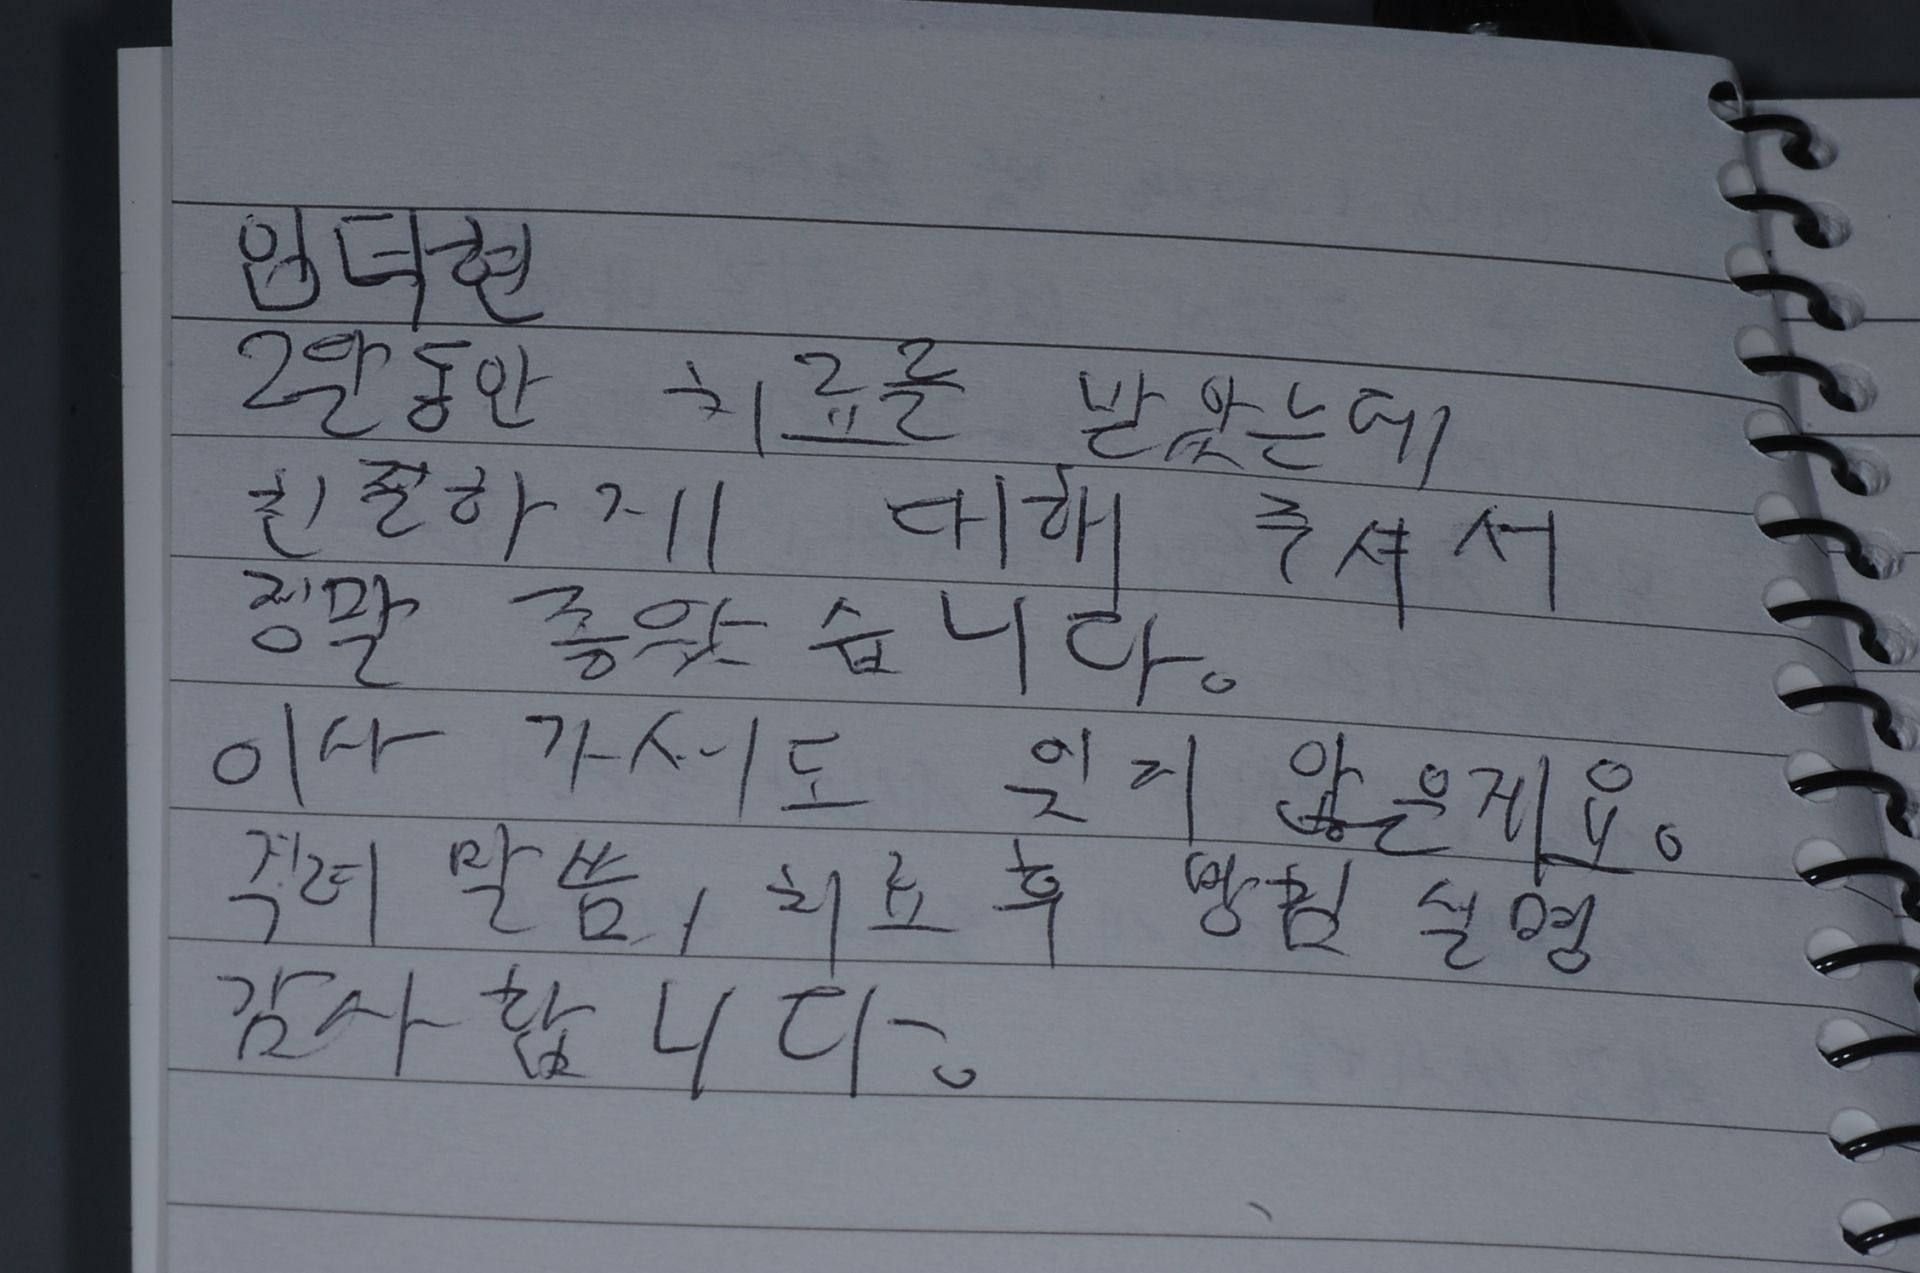 임덕현
2달동안 치료를 받았는데
친절하게 대해 주셔서
정말 좋왔습니다.
이사 가서도 잊지 않은게요.
격려 말씀, 치료 후 방침 설명
감사합니다.